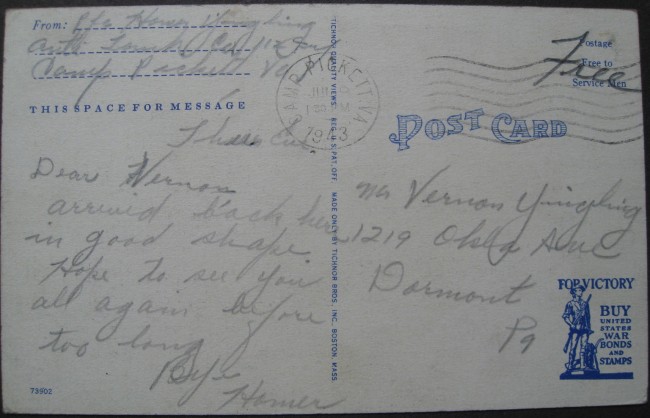 From: Pfc Homer Yingling
Camp Pickett Va
THIS SPACE FOR MESSAGE
Thurs Eve.
Dear Vernon
arrived back here
in good shape.
Hope to see you
all again before
too long
Bye
Homer
73902
TICHNOR QUALITY VIEWS. REG. U. S. PAT. OFF. MADE ONLY BY TICHNOR BROS., INC., BOSTON, MASS.
CAMP PICKETT, VA.
1 30 PM
1943
Postage
Free to
Service Men
Free
POST CARD
Mr Vernon Yingling
1219 Ave
Dormont
Pa
FOR VICTORY
BUY
UNITED
STATES
WAR
BONDS
AND
STAMPS